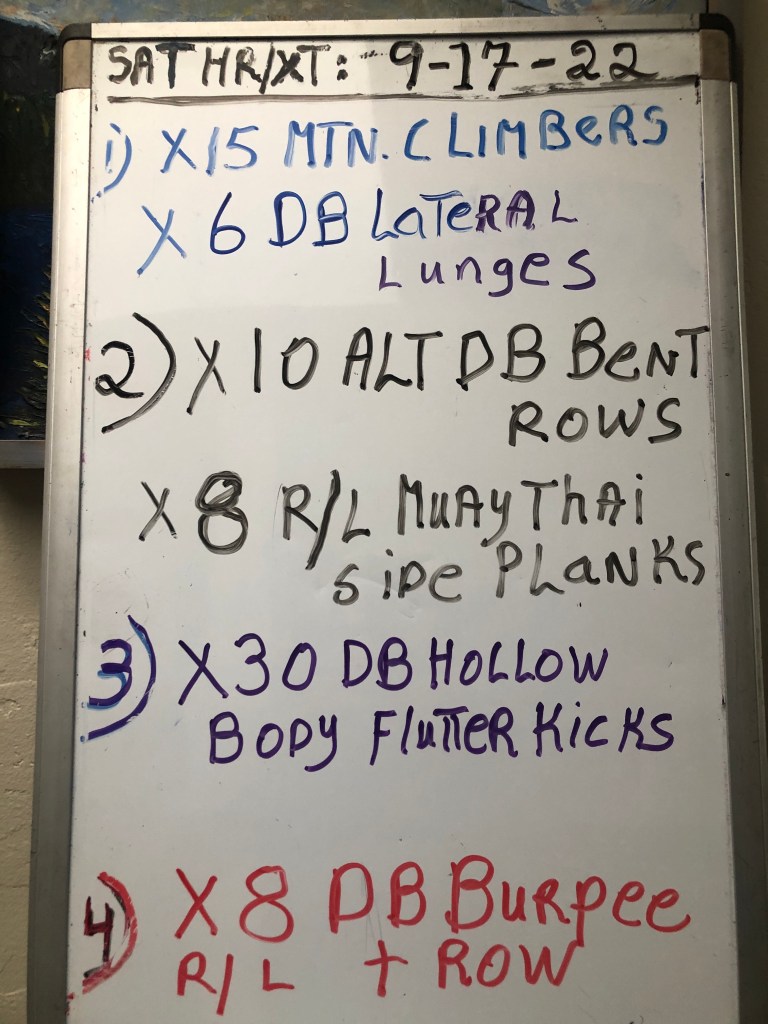 SAT HR/XT: 9-17-22
1) X15 MTN. CLIMBeRS
X 6 DB LaTeRAL
Lunges
2) X10 ALT DB BeNT
ROWS
X 8 R/L MuAy ThAi
SiDe PLaNKS
3) X30 DB HOLLOW
BODy FluTTeR KicKS
4) X 8 DB BuRpee
R/L + ROW